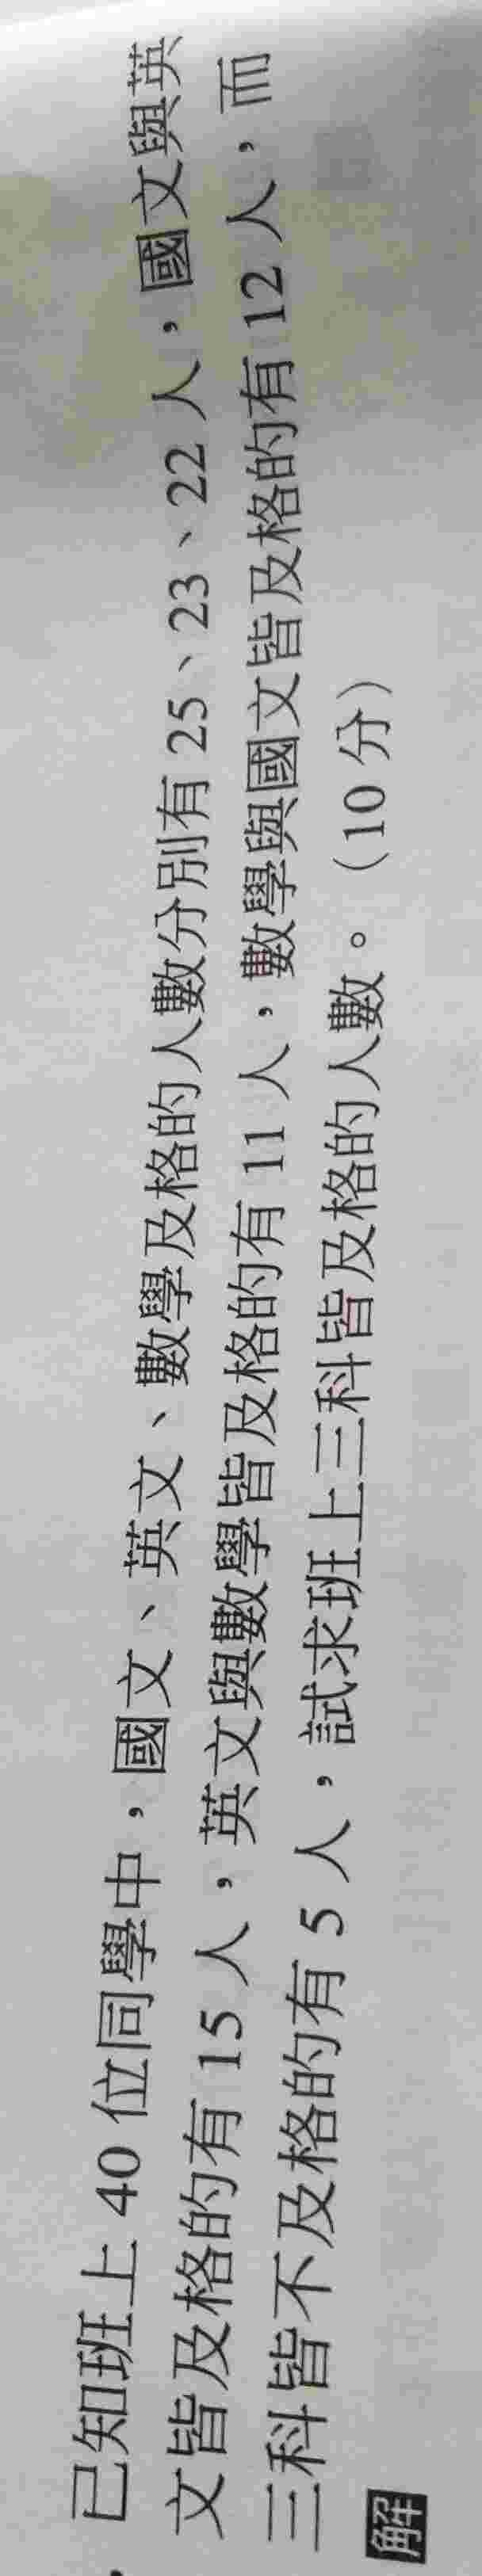 已知班上 40 位同學中，國文、英文、數學及格的人數分別有 25、23、22 人，國文與英
文皆及格的有 15 人，英文與數學皆及格的有 11 人，數學與國文皆及格的有 12 人，而
三科皆不及格的有 5 人，試求班上三科皆及格的人數。（10 分）
解